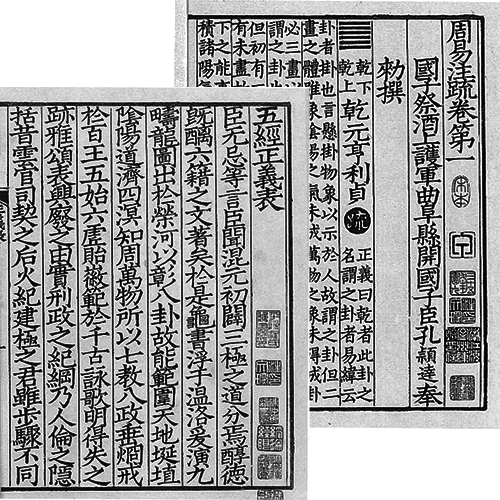 周易注疏卷第一
國子祭酒上護軍曲阜縣開國子臣孔穎達奉
勑撰
乾下
乾上
乾元亨利貞
疏
正義曰乾者此卦之
名謂之卦者易緯云
卦者掛也言懸掛物象以示於人故謂之卦但二
畫之體雖象陰陽之氣未成萬物之象未得成卦
必三畫以
謂之卦也
但初有三
有未盡
下之能
積諸陽氣
五經正義表
臣无忌等言臣聞混元初闢三極之道分焉醇德
既醨六籍之文著矣於是龜書浮于溫洛爰演九
疇龍圖出於榮河以彰八卦故能範圍天地埏埴
陰陽道濟四溟知周萬物所以七教八政垂烱戒
於百王五始六虗貽徽範於千古詠歌明得失之
跡雅頌表興廢之由實刑政之紀綱乃人倫之隱
括昔雲官司契之后火紀建極之君雖步驟不同